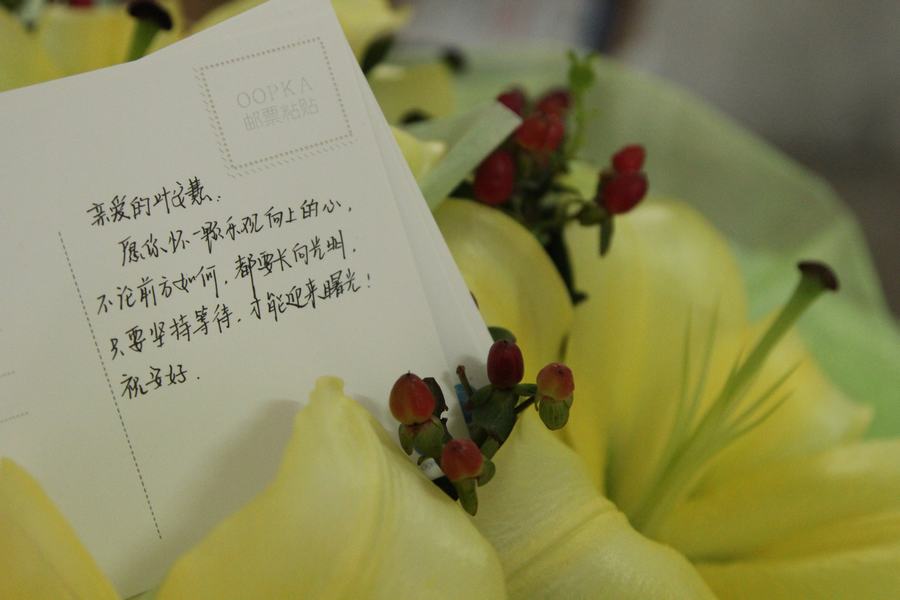 OOPKA
邮票粘贴
亲爱的叶文慧.
愿你怀一颗乐观向上的心,
不论前方如何,都要长向光明.
只要坚持等待,才能迎来曙光!
祝安好.